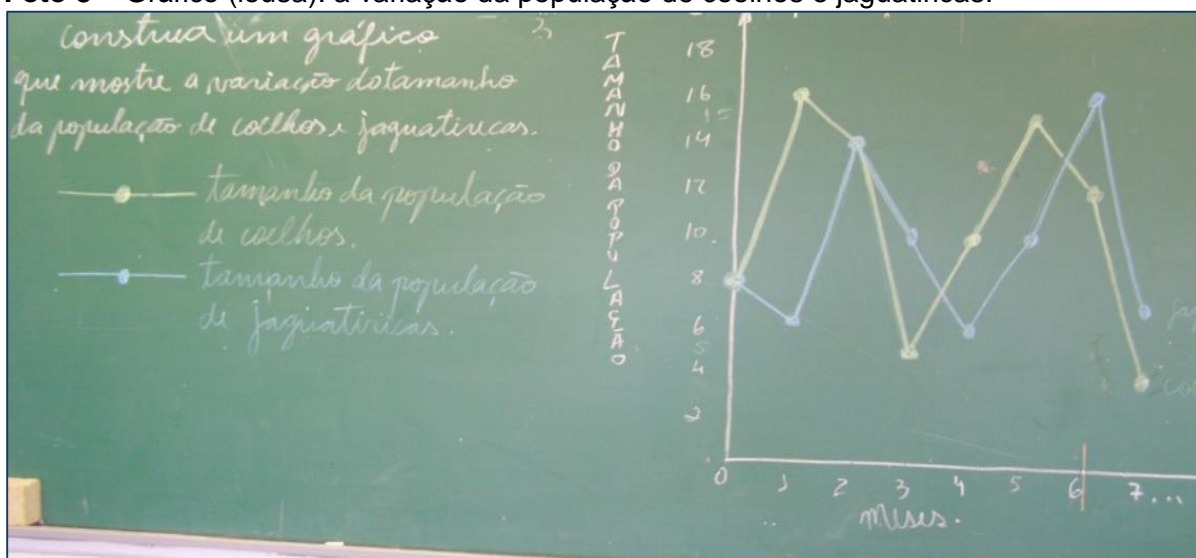 Gráfico (lousa): a variação da população de coelhos e jaguatiricas.
construa um gráfico
que mostre a variação do tamanho
da população de coelhos e jaguatiricas.
tamanho da população
de coelhos.
tamanho da população
de jaguatiricas.
TAMANHO DA POPULAÇÃO
18
16
15
14
12
10
8
6
5
4
2
0 1 2 3 4 5 6 7...
meses.